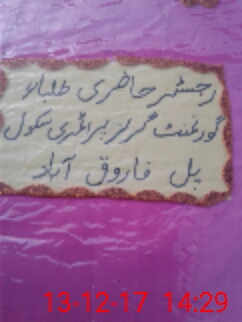 رجسٹر حاضری طلباء
گورنمنٹ گرلز پرائمری سکول
پل فاروق آباد
13-12-17 14:29